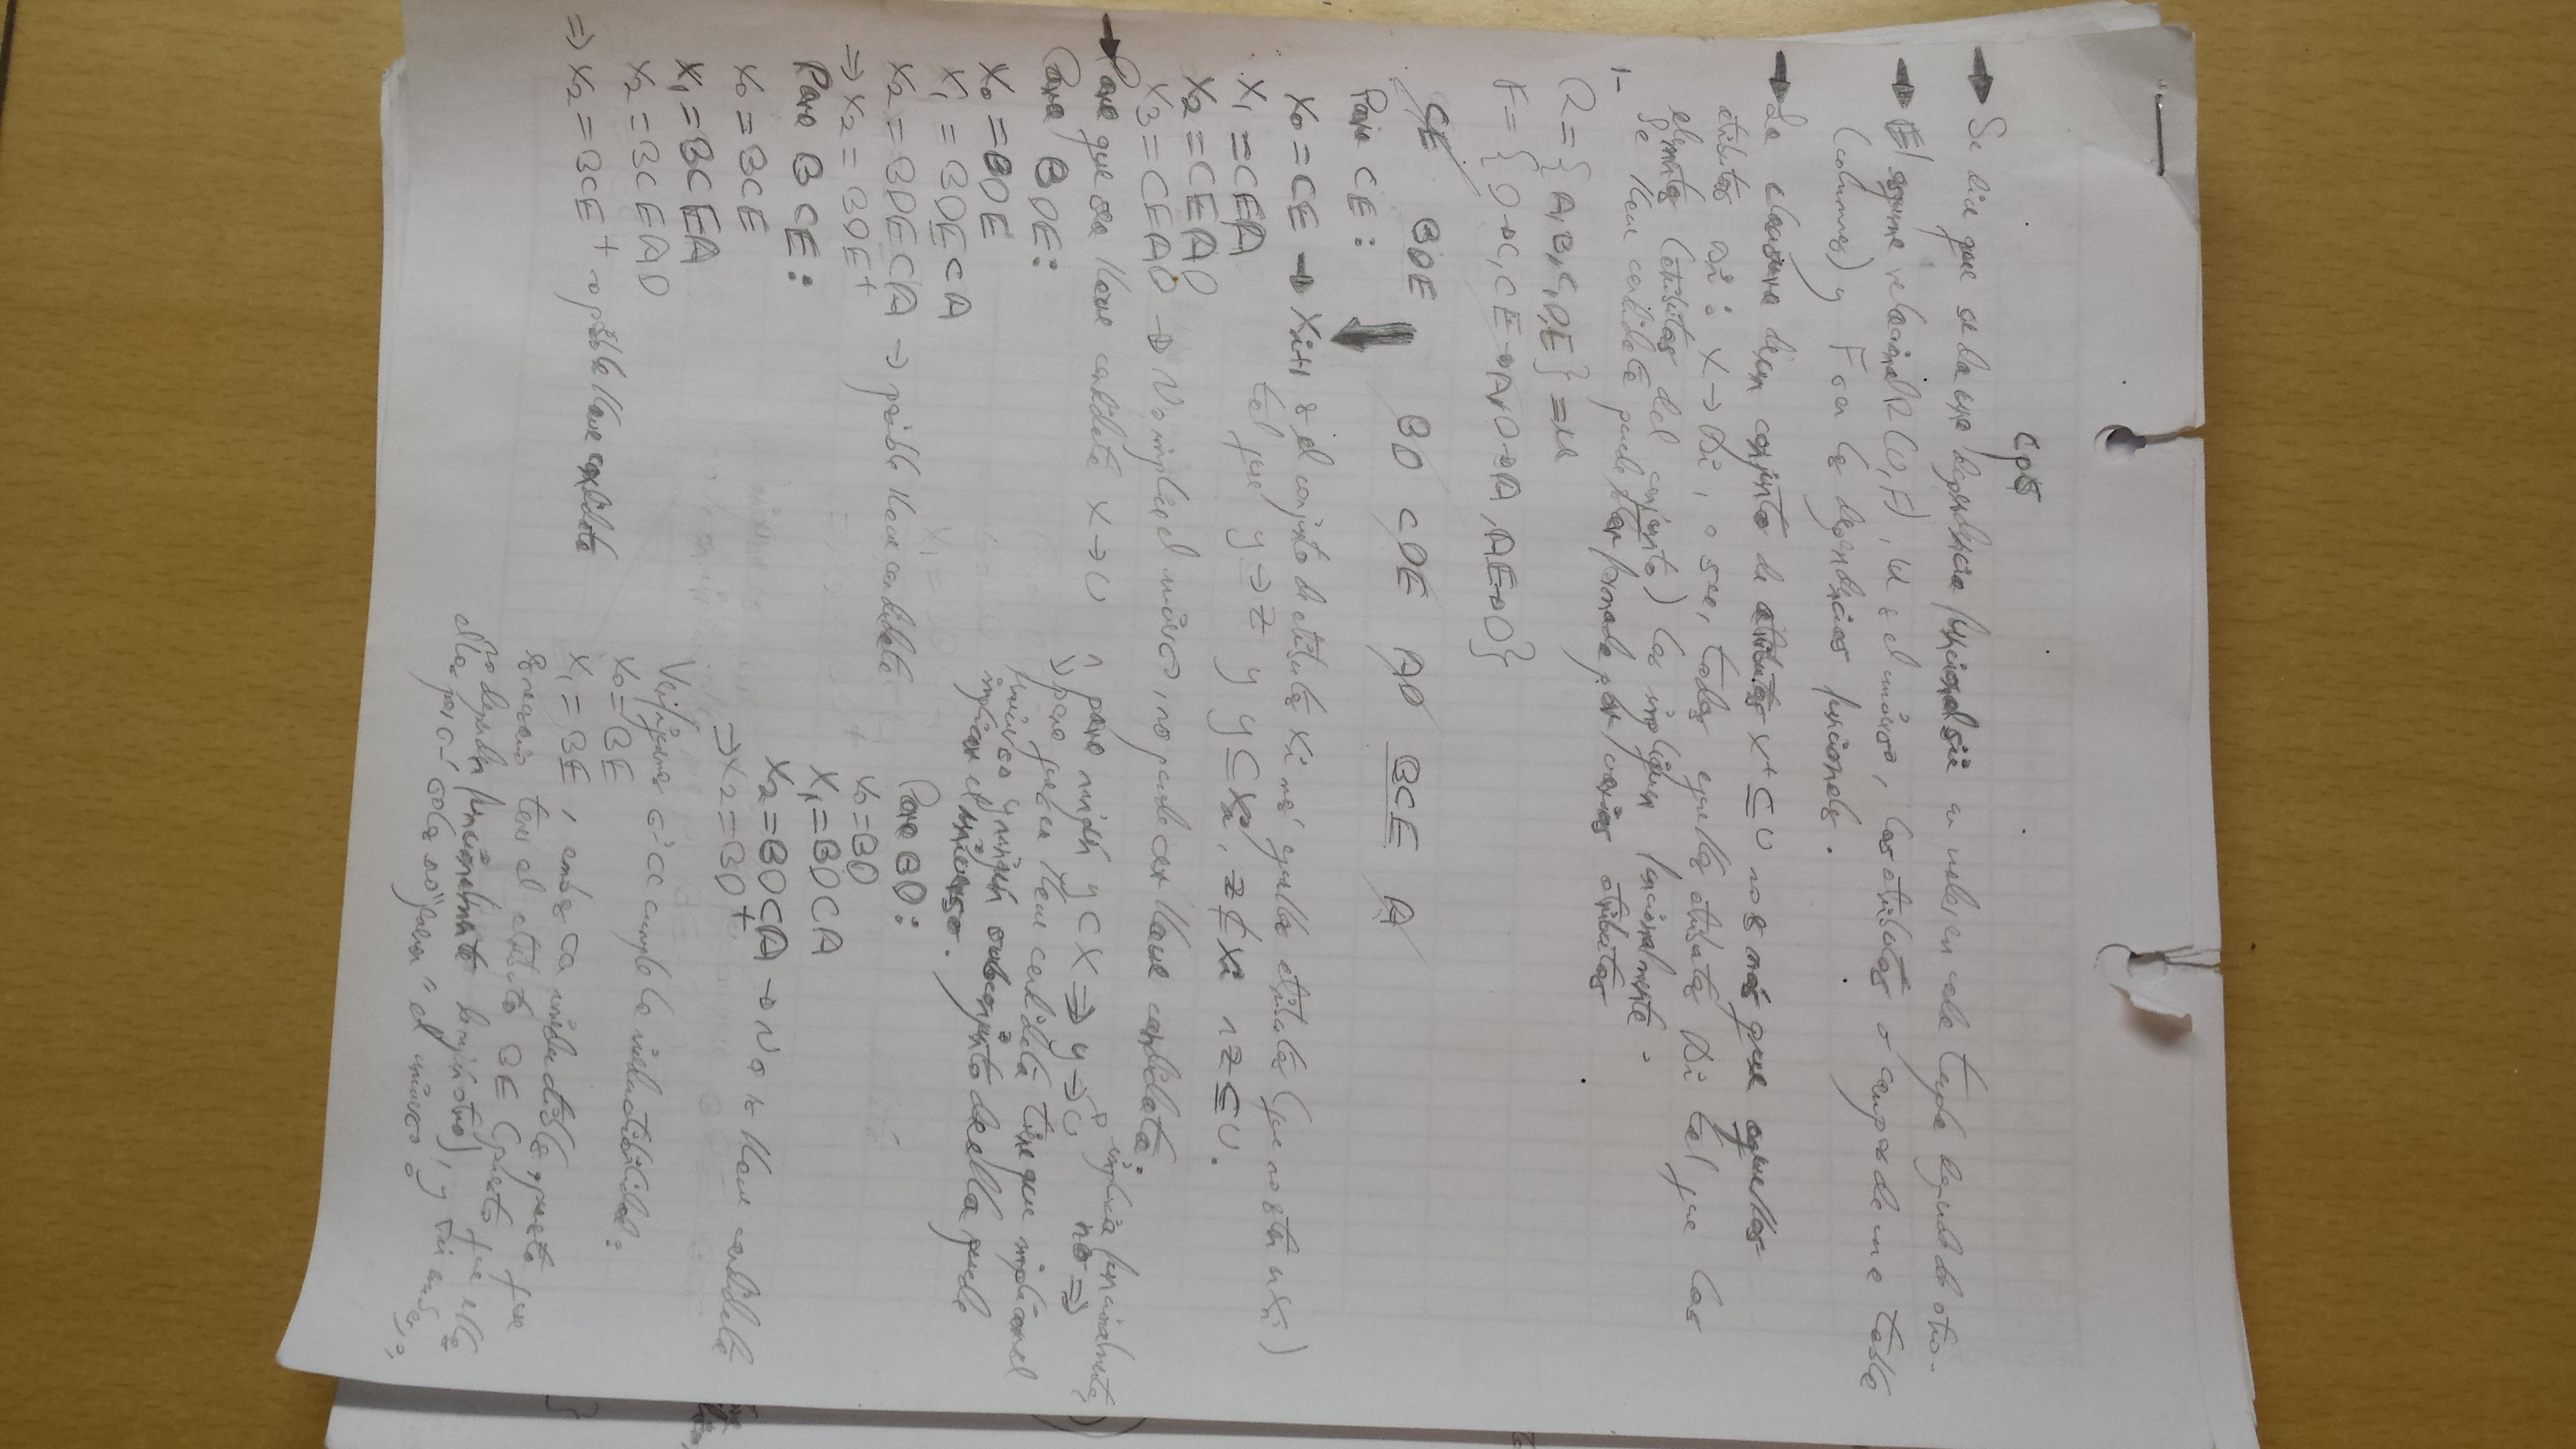 cp5
→ Se dice que se da una dependencia funcional sii un valor en cada tupla depende de otro.
→ El esquema relacional R(U,F), U es el universo, los atributos o campos de una tabla
(columnas) y F son las dependencias funcionales.
→ La clausura de un conjunto de atributos X⁺ ⊆ U no es más que aquellos
atributos Ai : X → Ai, o sea, todos aquellos atributos Ai tal que los
elementos (atributos del conjunto) los implican funcionalmente.
La llave candidata puede estar formada por varios atributos
1-
R = {A, B, C, D, E} = U
F = {D→C, CE→A, D→A, AE→D}
CE BDE BD CDE AD BCE A
Para CE:
X0 = CE → Xi+1 es el conjunto de atributos Xi más aquellos atributos (que no están en Xi)
X1 = CEA tal que y→z y y ⊆ Xi, z ⊄ Xi ∧ z ⊆ U.
X2 = CEAD
X3 = CEAD → No implica el universo, no puede ser llave candidata.
→ Para que sea llave candidata X→U ∧ para ningún y ⊂ X ⇒ y→U
implica funcionalmente, no ⇒
para que sea llave candidata tiene que implicar el
universo y ningún subconjunto de ella puede
implicar el universo.
Para BDE:
X0 = BDE
X1 = BDECA
X2 = BDECA → posible llave candidata
⇒ X2 = BDE⁺
Para BCE:
X0 = BCE
X1 = BCEA
X2 = BCEAD
⇒ X2 = BCE⁺ → posible llave candidata
Para BD:
X0 = BD
X1 = BDCA
X2 = BDCA → No es llave candidata
⇒ X2 = BD⁺
Verifiquemos si cc cumple la irreductibilidad:
X0 = BE
X1 = BE, ambas irreductibles, puesto que
es necesario tener el atributo BE (puesto que ellos
no dependen funcionalmente de ningún otro), y
ellos por sí solos no "generan" el universo.